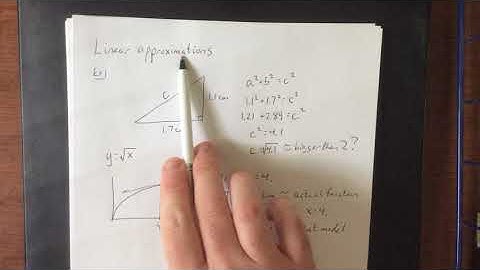 Linear approximations
Ex)
a²+b²=c²
c
1.1cm
1.1²+1.7²=c²
1.21+2.89=c²
1.7c
c²=4.1
c=√4.1 ≈ bigger than 2?
y=√x
=4.
≈ actual function
x=4.
model